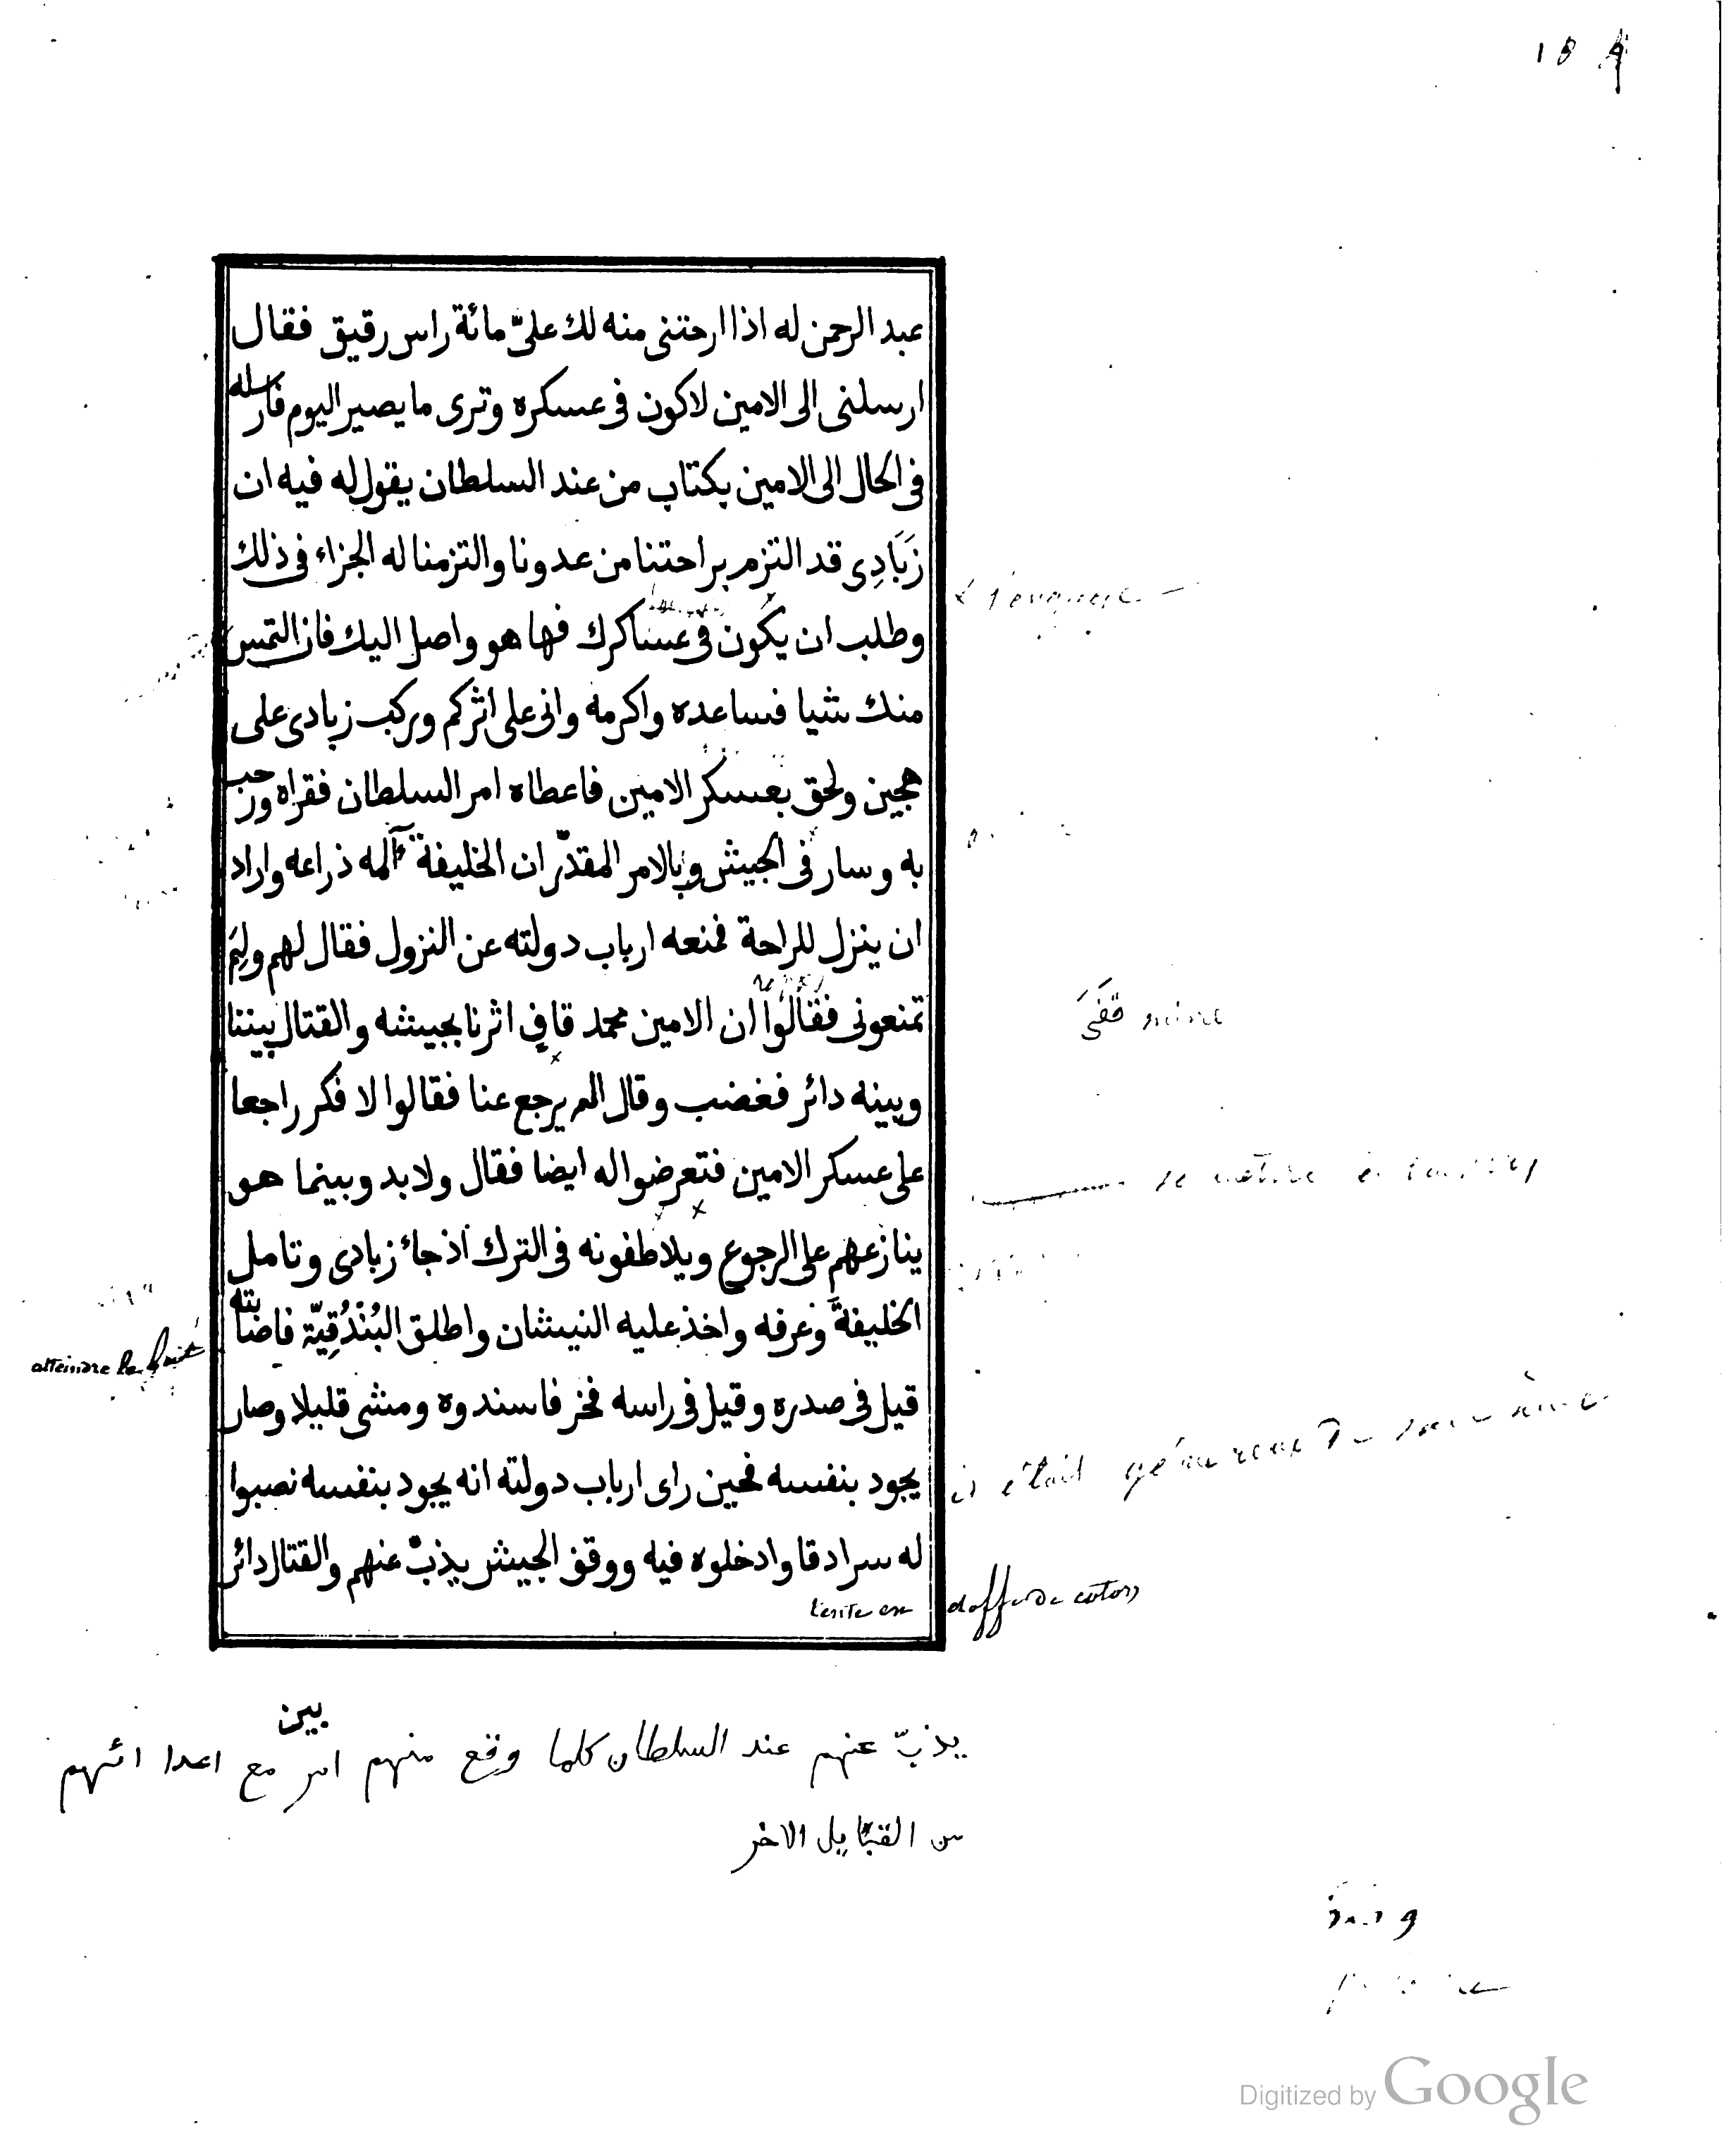 عبد الرحمن له اذا ارحتنى منه لك علىّ مائة راس رقيق فقال
ارسلنى الى الامين لاكون فى عسكره وترى ما يصير اليوم فارسله
فى الحال الى الامين بكتاب من عند السلطان يقول له فيه ان
زَبَادِى قد التزم براحتنا من عدونا والتزمنا له الجزاء فى ذلك
s'engager
وطلب ان يكون فى عساكرك فها هو واصل اليك فان التمس
منك شيا فساعده واكرمه وانى على اثركم وركب زبادى على
هجين ولحق بعسكر الامين فاعطاه امر السلطان فقراه ورحب
به وسار فى الجيش وبالامر المقدّر ان الخليفة ءآلمه ذراعه واراد
ان ينزل للراحة فمنعه ارباب دولته عن النزول فقال لهم ولِمَ
تمنعونى فقالوا ان الامين محمد قافٍ اثرنا بجيشه والقتال بيننا
قَفَىَ
وبينه دائر فغضب وقال الم يرجع عنا فقالوا لا فكر راجعا
على عسكر الامين فتعرضوا له ايضا فقال ولا بد وبينما هو
se mettre
ينازعهم على الرجوع ويلاطفونه فى الترك اذ جاء زبادى وتامل
الخليفةَ وعرفه واخذ عليه النيشان واطلق البُنْدُقِيّة فاصابته
atteindre le
قيل فى صدره وقيل فى راسه فخر فاسندوه ومشى قليلا وصار
يجود بنفسه فحين راى ارباب دولته انه يجود بنفسه نصبوا
était
له سرادقا وادخلوه فيه ووقف الجيش يذبّ عنهم والقتال دائر
بين
يذبّ عنهم عند السلطان كلما وقع منهم امر مع اعدائهم
من القبايل الاخر
Digitized by Google